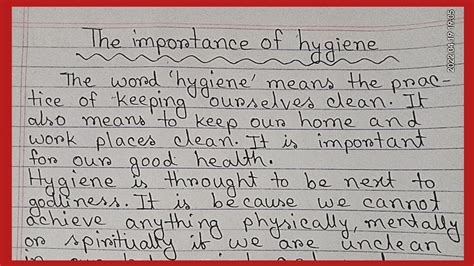 The importance of hygiene
The word 'hygiene' means the prac-
tice of keeping ourselves clean. It
also means to keep our home and
work places clean. It is important
for our good health.
Hygiene is throught to be next to
godliness. It is because we cannot
achieve anything physically, mentally
or spiritually if we are unclean